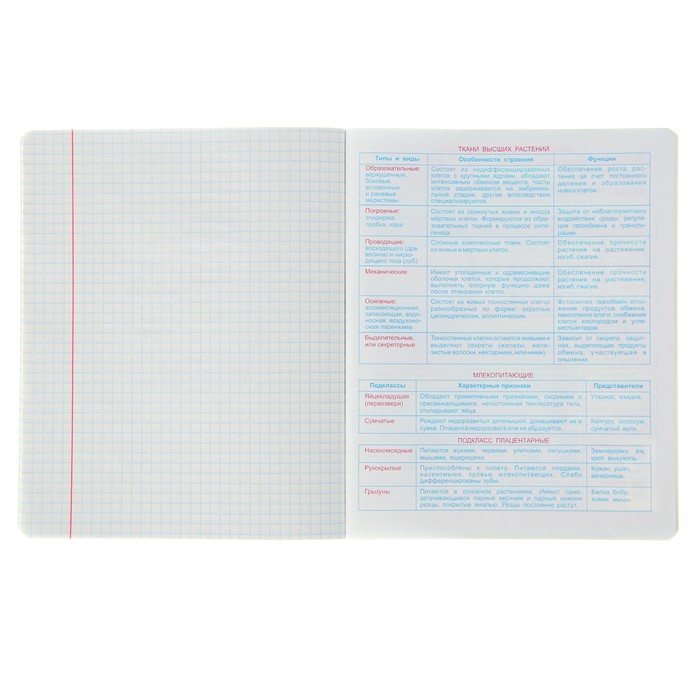 ТКАНИ ВЫСШИХ РАСТЕНИЙ
Типы и виды Особенности строения Функции
Образовательные: верхушечные, боковые, вставочные и раневые меристемы
Состоит из недифференцированных клеток с крупными ядрами, обладают интенсивным обменом веществ. Часть клеток задерживается на эмбриональной стадии, другие впоследствии специализируются.
Обеспечение роста растения за счет постоянного деления и образования новых клеток.
Покровные: эпидерма, пробка, кора
Состоит из сомкнутых живых и иногда мёртвых клеток. Формируются из образовательных тканей в процессе онтогенеза.
Защита от неблагоприятного воздействия среды, регуляция газообмена и транспирации.
Проводящие: восходящего (древесина) и нисходящего тока (луб)
Сложные комплексные ткани. Состоят из живых и мертвых клеток.
Обеспечение прочности растения на растяжение, изгиб, сжатие.
Механические
Имеют утолщенные и одревесневшие оболочки клеток, которые продолжают выполнять опорную функцию даже после отмирания клеток.
Обеспечение прочности растения на растяжение, изгиб, сжатие.
Основные: ассимиляционная, запасающая, водоносная, воздухоносная паренхима
Состоят из живых тонкостенных клеток разнообразных по форме: округлых цилиндрических, эллиптических.
Фотосинтез, газообмен, отложение продуктов обмена, накопление влаги, снабжение клеток кислородом и углекислым газом.
Выделительные, или секреторные
Тонкостенные клетки остаются живыми и выделяют секреты (железы, железистые волоски, нектарники, млечники).
Зависит от секрета: защитная, выделяющая продукты обмена, участвующая в опылении.
МЛЕКОПИТАЮЩИЕ
Подклассы Характерные признаки Представители
Яйцекладущие (первозвери)
Обладают примитивными признаками, сходными с пресмыкающимися, непостоянная температура тела, откладывают яйца.
Утконос, ехидна.
Сумчатые
Рождают недоразвитых детенышей, донашивают их в сумке. Плацента недоразвита или не образуется.
Кенгуру, опоссум, сумчатый волк.
ПОДКЛАСС ПЛАЦЕНТАРНЫЕ
Насекомоядные
Питаются жуками, червями, улитками, лягушками, мышами, ящерицами.
Землеройка, ёж, крот, выхухоль.
Рукокрылые
Приспособлены к полету. Питаются плодами, насекомыми, кровью млекопитающих. Слабо дифференцированы зубы.
Кожан, ушан, вечерница.
Грызуны
Питаются в основном растениями. Имеют самозатачивающиеся парные верхние и парные нижние резцы, покрытые эмалью. Резцы постоянно растут.
Белка, бобр, хомяк, мышь.